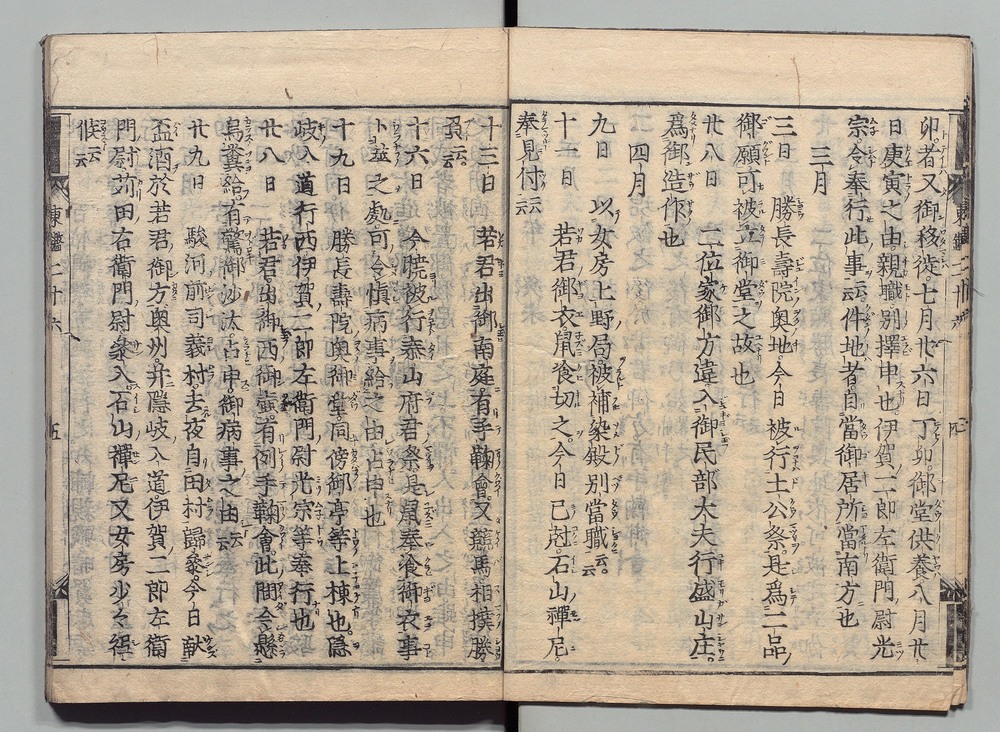 卯者又御移徙七月廿六日丁卯御堂供養八月廿
日庚寅之由親職別擇申也伊賀二郎左衛門尉光
宗令奉行此事云云件地者自當御居所當南方也
三月
三日 勝長壽院奥地今日被行土公祭是爲二品
御願可被立御堂之故也
廿八日 二位家御方違入御民部大夫行盛山庄
爲御造作也
四月
九日 以女房上野局被補染殿別當職云云
十一日 若君御衣鼠飡切之今日已尅石山禪尼
奉見付云云
十三日 若君出御南庭有手鞠會又競馬相撲勝
負云云
十六日 今曉被行泰山府君祭是鼠奉飡御衣事
卜筮之處可令愼病事給之由占申也
十九日 勝長壽院奥御堂洞傍御亭等上棟也隱
岐入道行西伊賀二郎左衛門尉光宗等奉行也
廿八日 若君出御西御壷有例手鞠會此間令懸
烏糞給有驚御沙汰占申御病事之由云云
廿九日 駿河前司義村去夜自田村歸參今日献
盃酒於若君御方奥州并隱岐入道伊賀二郎左衛
門尉苅田右衛門尉參入石山禪尼又女房少々祗
候云云
東鑑二十六 五